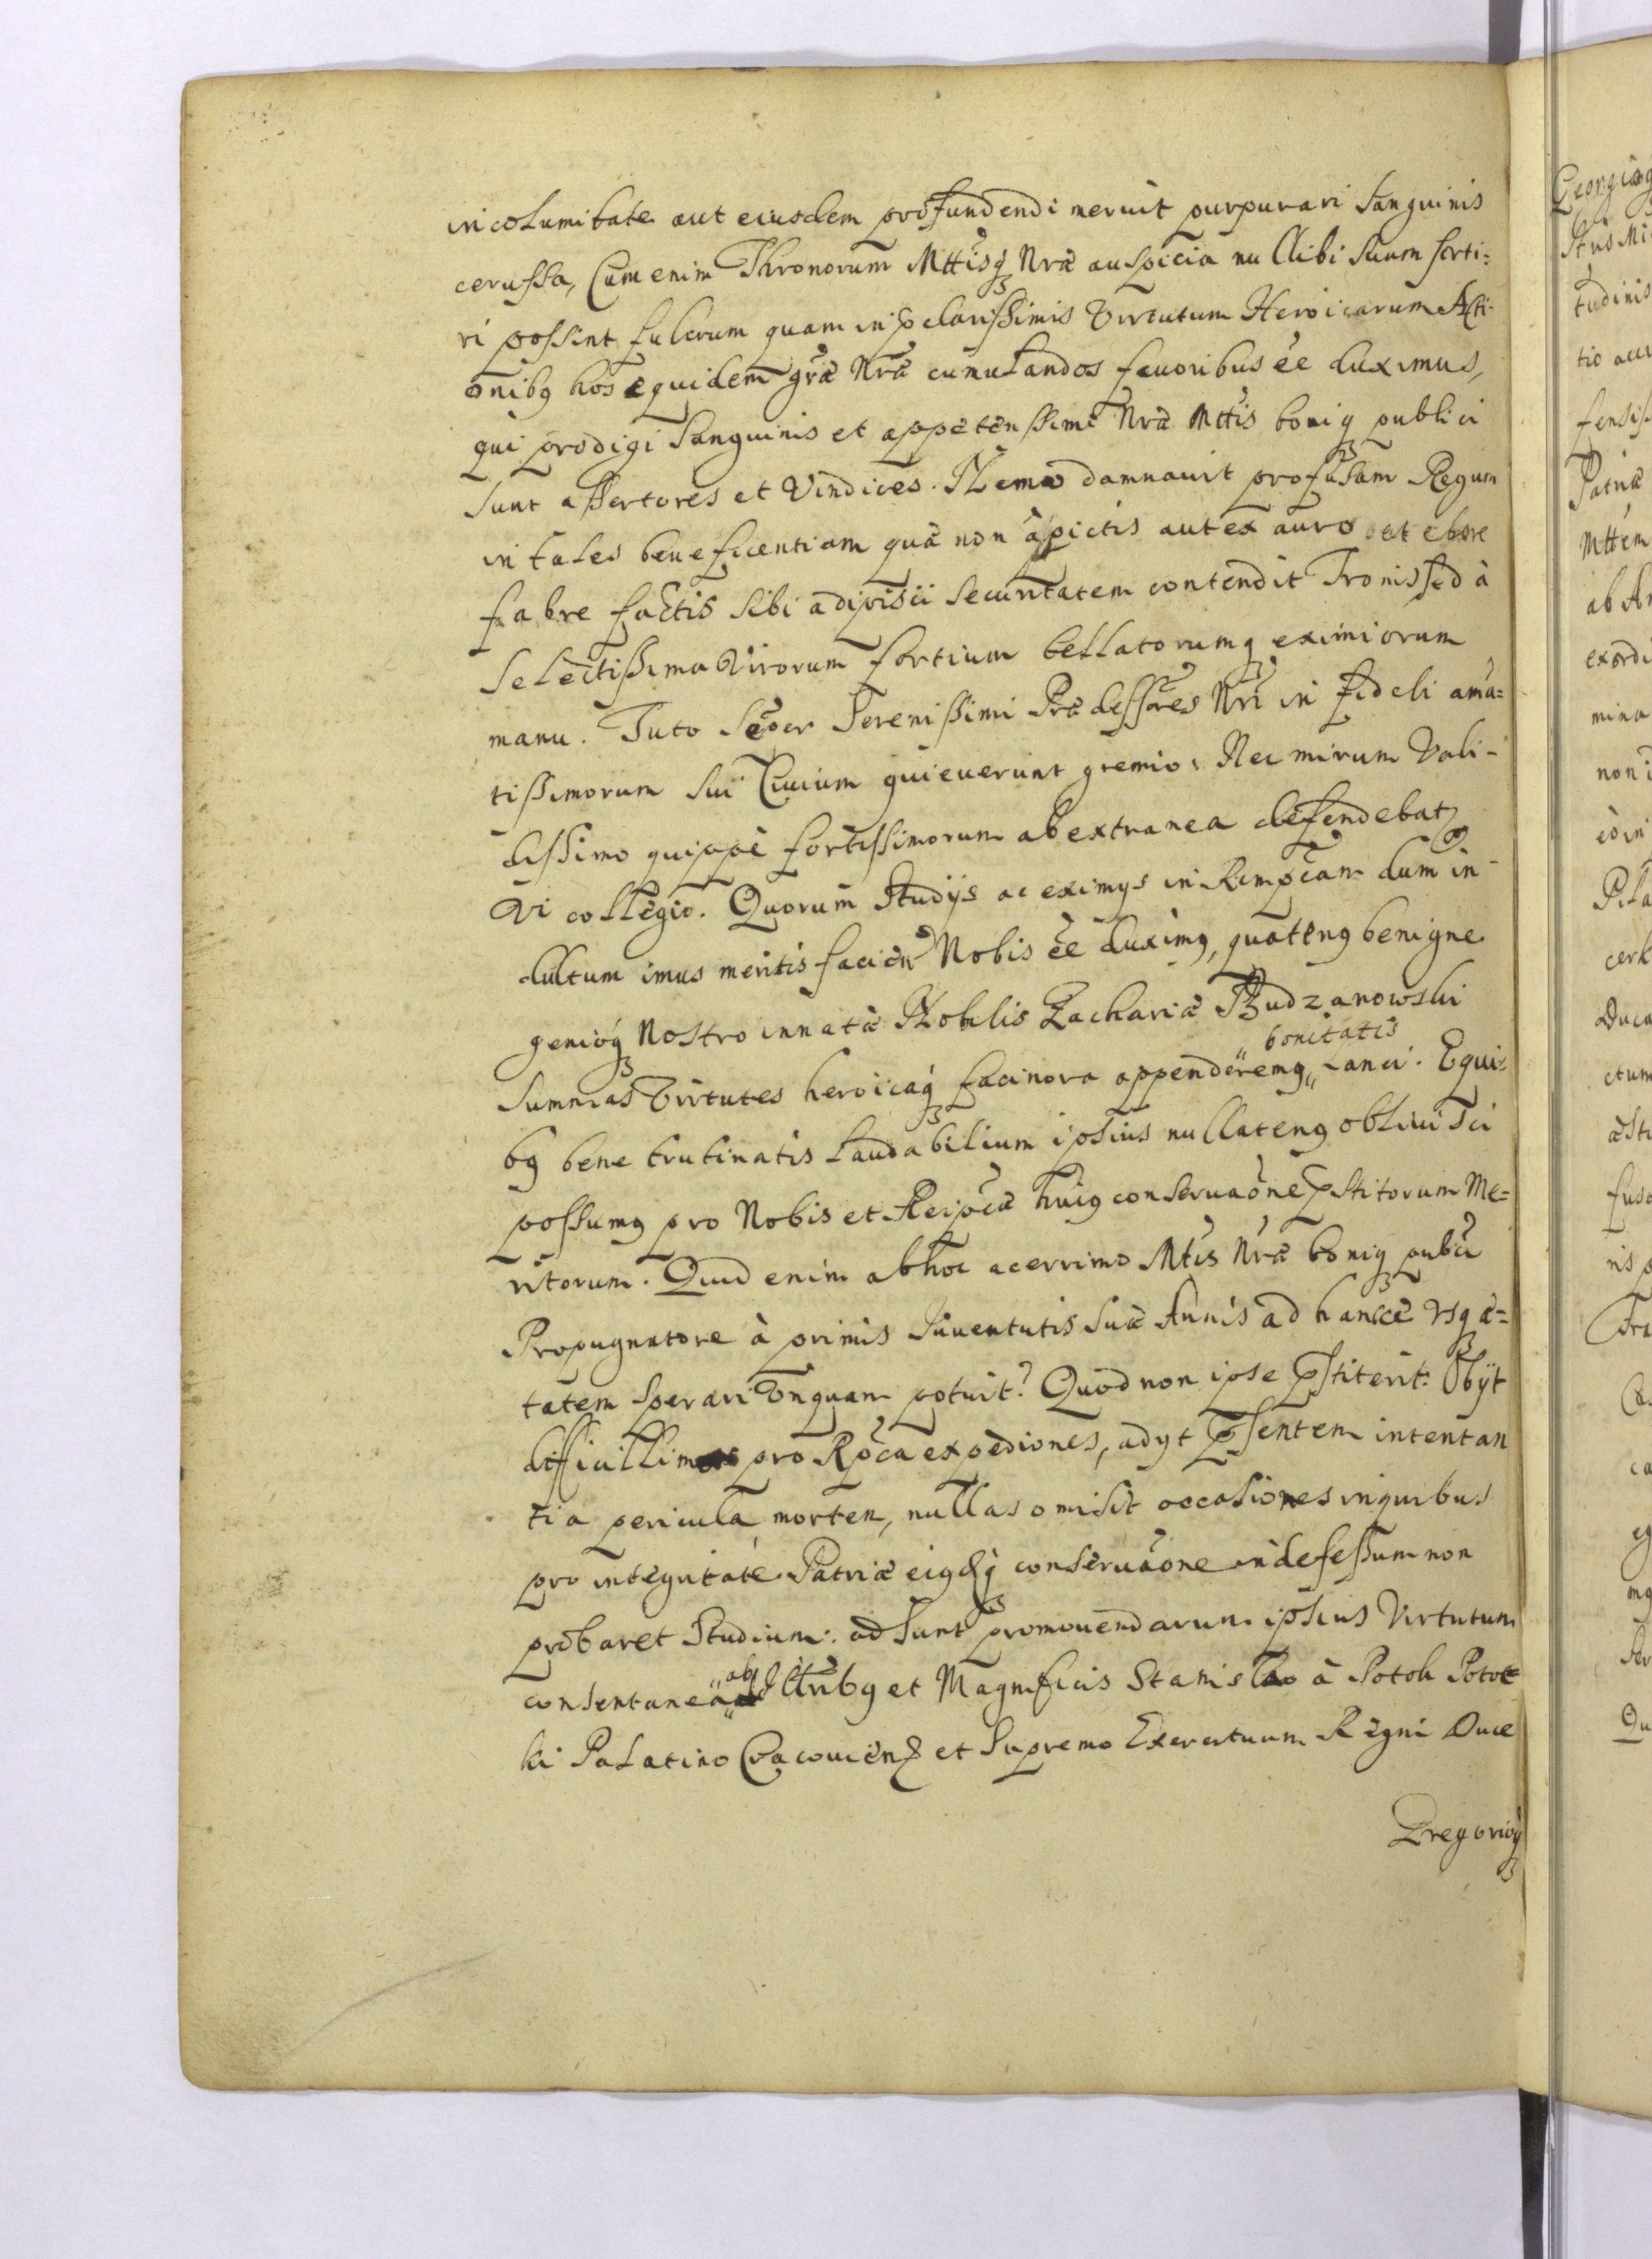 incolumitate aut eiusdem profundendi meruit purpurari Sanguinis
cerussa, Cum enim Thronorum Mttisq Nræ auspicia nullibi suum sorti=
ri possint fulcrum quam in pclarissimis Virtutum Heroicarum Acti-
onibq hos equidem grã Nrã cumulandos fauoribus ee duximus,
qui prodigi Sanguinis et appetentissimi Nræ Mttis boniq publici
sunt assertores et Vindices. Nemo damnauit profusam Regum
in tales beneficentiam quæ non à pictis aut ex auro aut ebore
fabre factis sibi adipisci securitatem contendit Tronis sed à
Selectissima Virorum fortium bellatorumq eximiorum
manu. Tuto sëper Serenissimi Prædessores Nri in fideli ama=
tissimorum sui Ciuium quieuerunt gremio. Nec mirum Vali-
dissimo quippe fortissimorum ab extranea defendebat
Vi collegio. Quorum Studijs ac eximys in Rempcam dum in-
dultum imus meritis facien Nobis ee duximq, quatenq benigne
genioq Nostro innatæ Nobilis Zachariæ Budzanowski
bonitatis
Summas Virtutes heroicaq facinora appenderemq „ Lanci. Equi-
bq bene trutinatis Laudabilium ipsius nullatenq obliuisci
possumq pro Nobis et Reipcæ huiq conseruaone pstitorum Me=
ritorum. Quid enim ab hoc acerrimo Mtis Nræ boniq pubci
Propugnatore à primis Iuuentutis suæ Annis ad hancce vsq æ=
tatem sperari Vnquam potuit? Quod non ipse pstiterit. Obijt
difficillimas pro Rpca expediones, adyt psentem intentan
tia pericula mortem, nullas omisit occasiones in quibus
pro integritate Patriæ eiqdq conseruaone indefessum non
probaret Studium. ad sunt promouendarum ipsius Virtutum
ab
consentanea „ Illribq et Magnificis Stanislao à Potok Potoc
ki Palatino Cracouien et Supremo Exercituum Regni Duce
Gregorioq